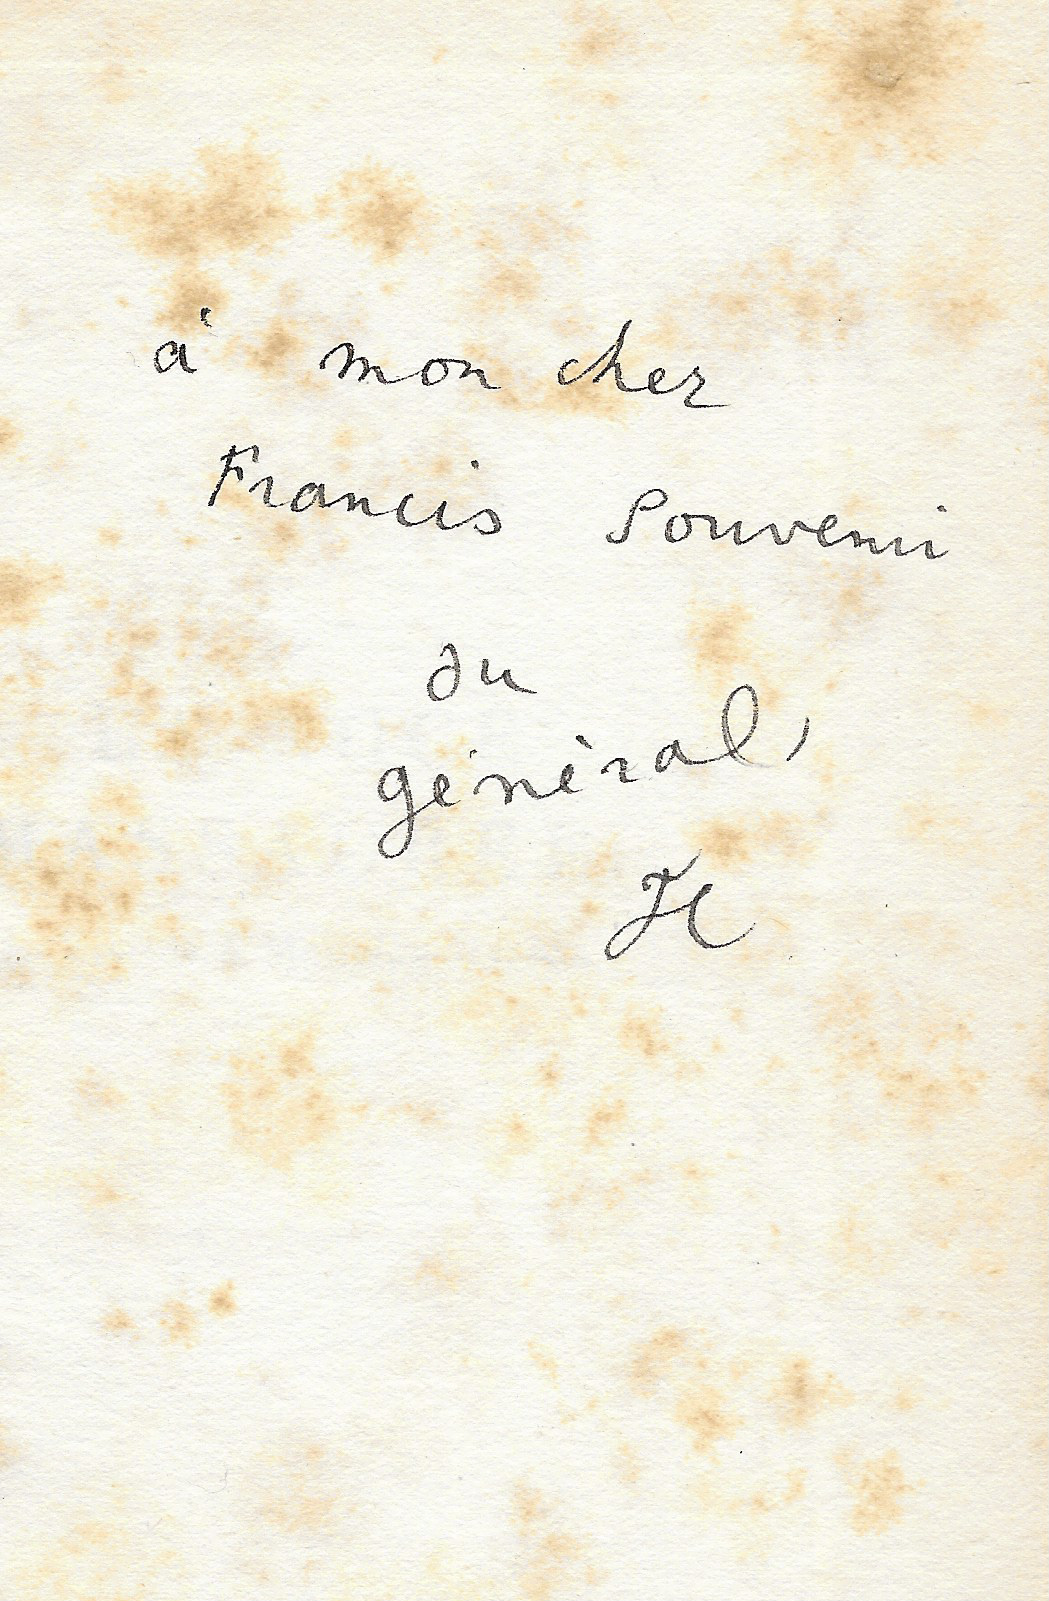 à mon cher
Francis Souvenir
du
général,
JC